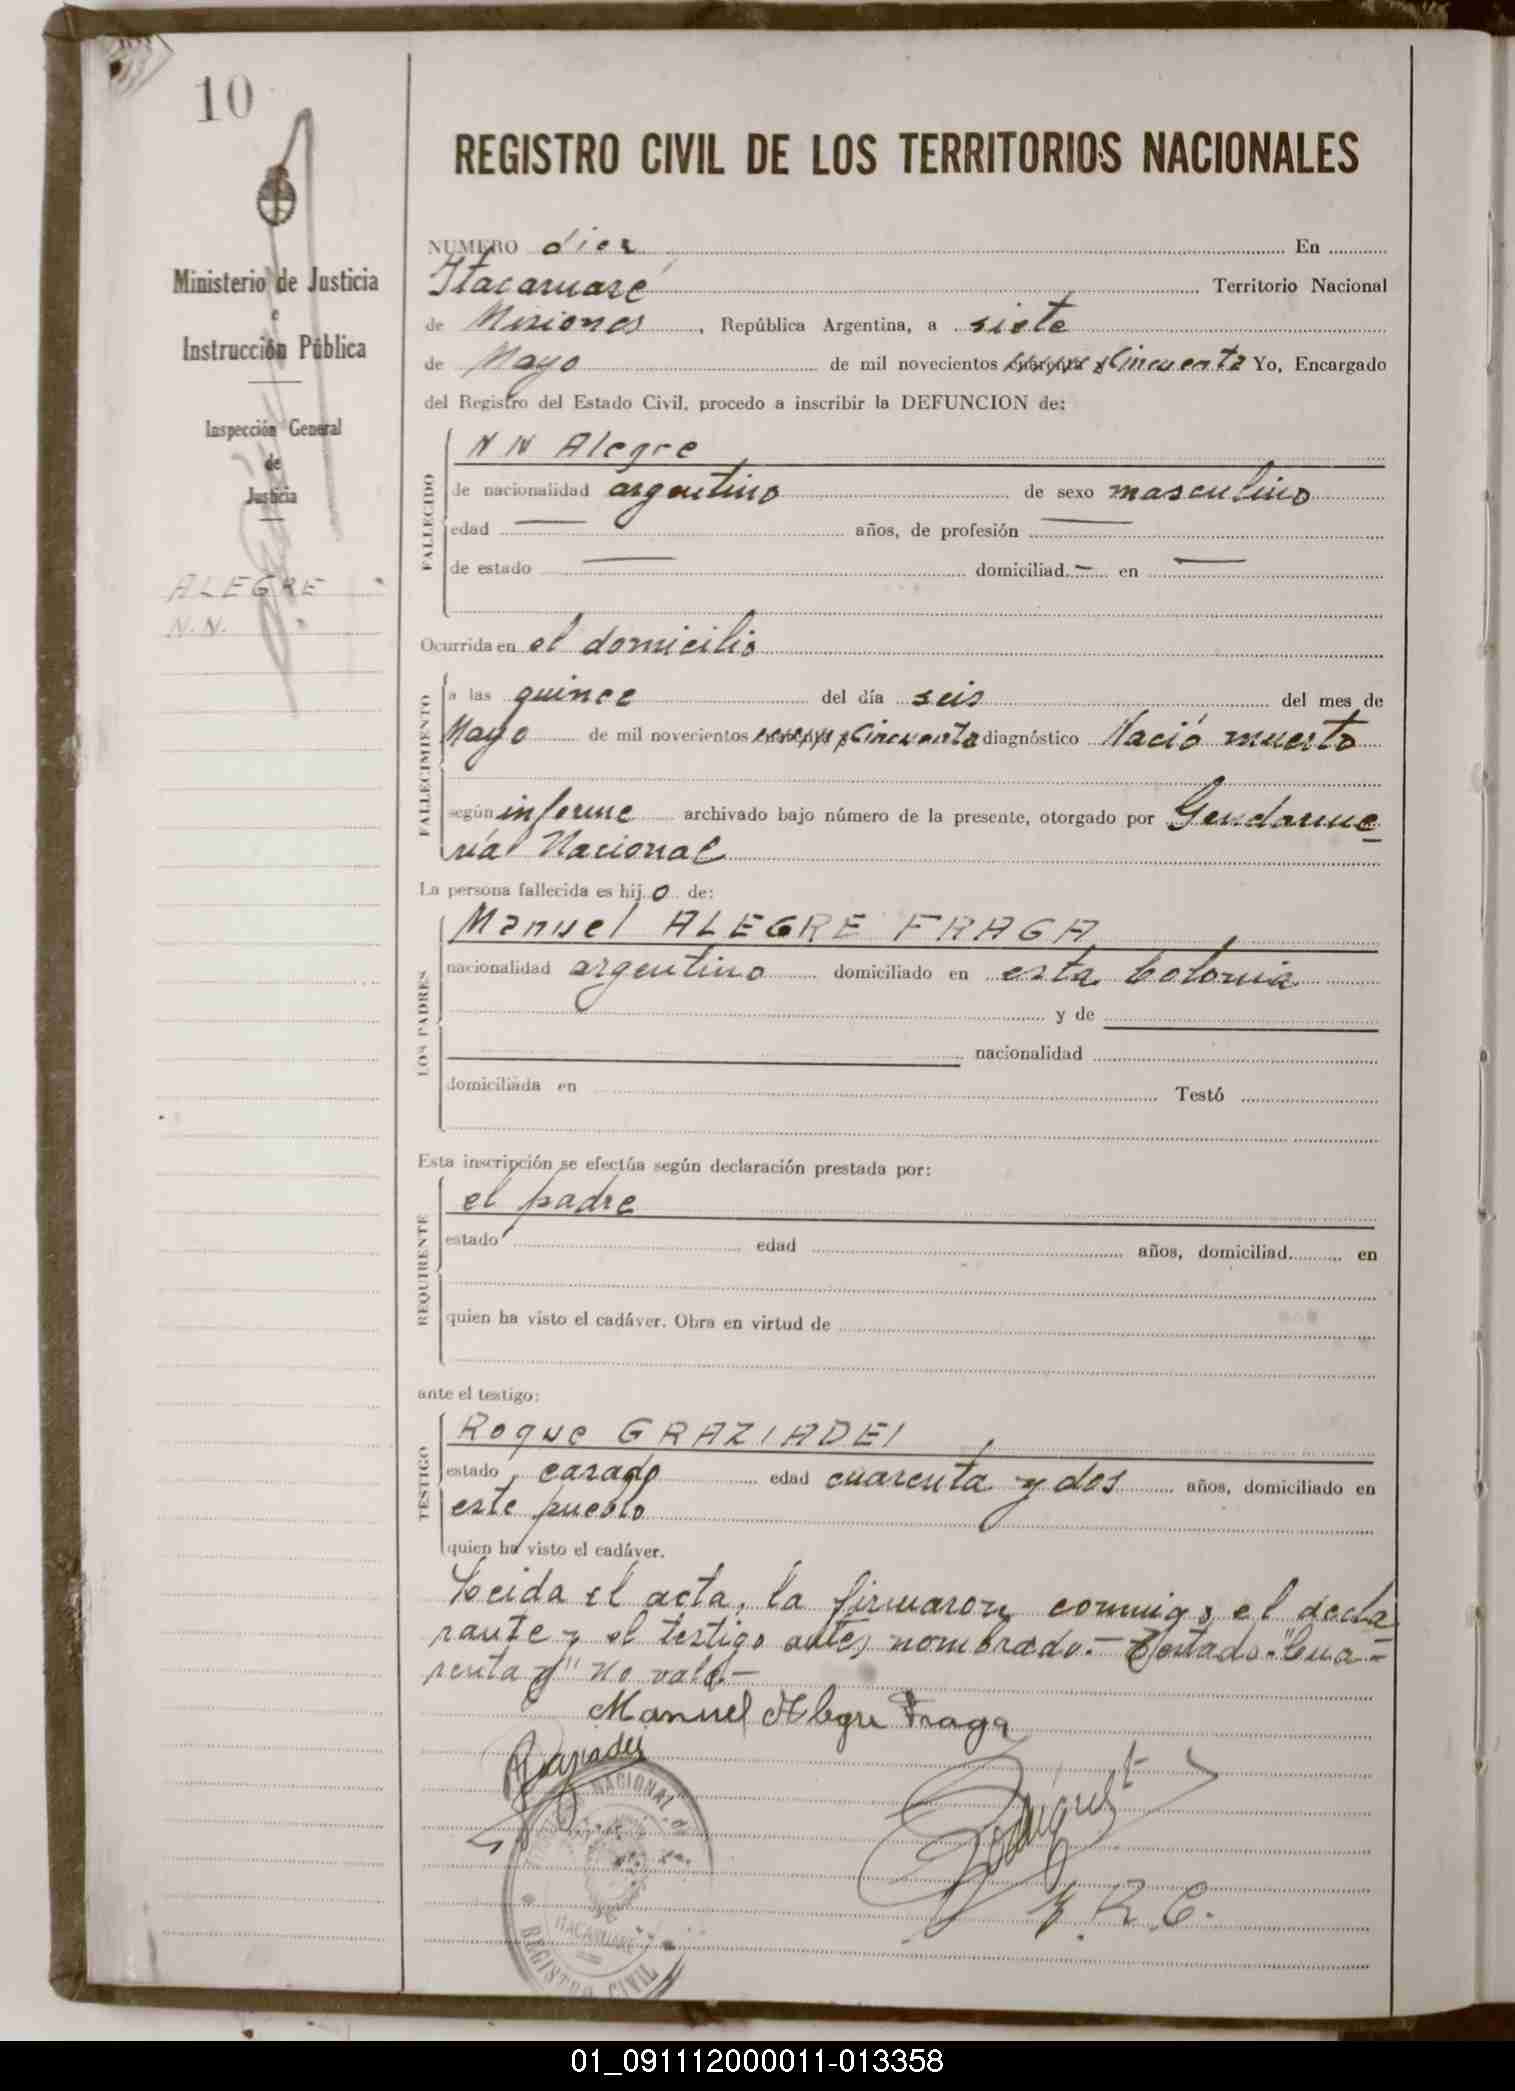 10
Ministerio de Justicia
e
Instrucción Pública
Inspección General
de
Justicia
ALEGRE
N.N.
REGISTRO CIVIL DE LOS TERRITORIOS NACIONALES
NUMERO diez En
Itacaruaré Territorio Nacional
de Misiones, República Argentina, a siete
de Mayo de mil novecientos cuarenta y Cincuenta Yo, Encargado
del Registro del Estado Civil, procedo a inscribir la DEFUNCION de:
FALLECIDO
N N Alegre
de nacionalidad argentino de sexo masculino
edad — años, de profesión —
de estado — domiciliad — en —
Ocurrida en el domicilio
FALLECIMIENTO
a las quince del día seis del mes de
Mayo de mil novecientos cuarenta y Cincuenta diagnóstico Nació muerto
según informe archivado bajo número de la presente, otorgado por Gendarme
ría Nacional
La persona fallecida es hijo de:
LOS PADRES
Manuel ALEGRE FRAGA
nacionalidad argentino domiciliado en esta Colonia
y de
nacionalidad
domiciliada en Testó
Esta inscripción se efectúa según declaración prestada por:
REQUIRENTE
el padre
estado edad años, domiciliad en
quien ha visto el cadáver. Obra en virtud de
ante el testigo:
TESTIGO
Roque GRAZIADEI
estado casado edad cuarenta y dos años, domiciliado en
este pueblo
quien ha visto el cadáver.
Leida el acta, la firmaron conmigo el decla
rante y el testigo antes nombrado.— Testado-"Cua-
renta y" No vale.—
Manuel Alegre Fraga
NACIONAL
ITACARUARE
REGISTRO CIVIL
E.R.C.
01_091112000011-013358